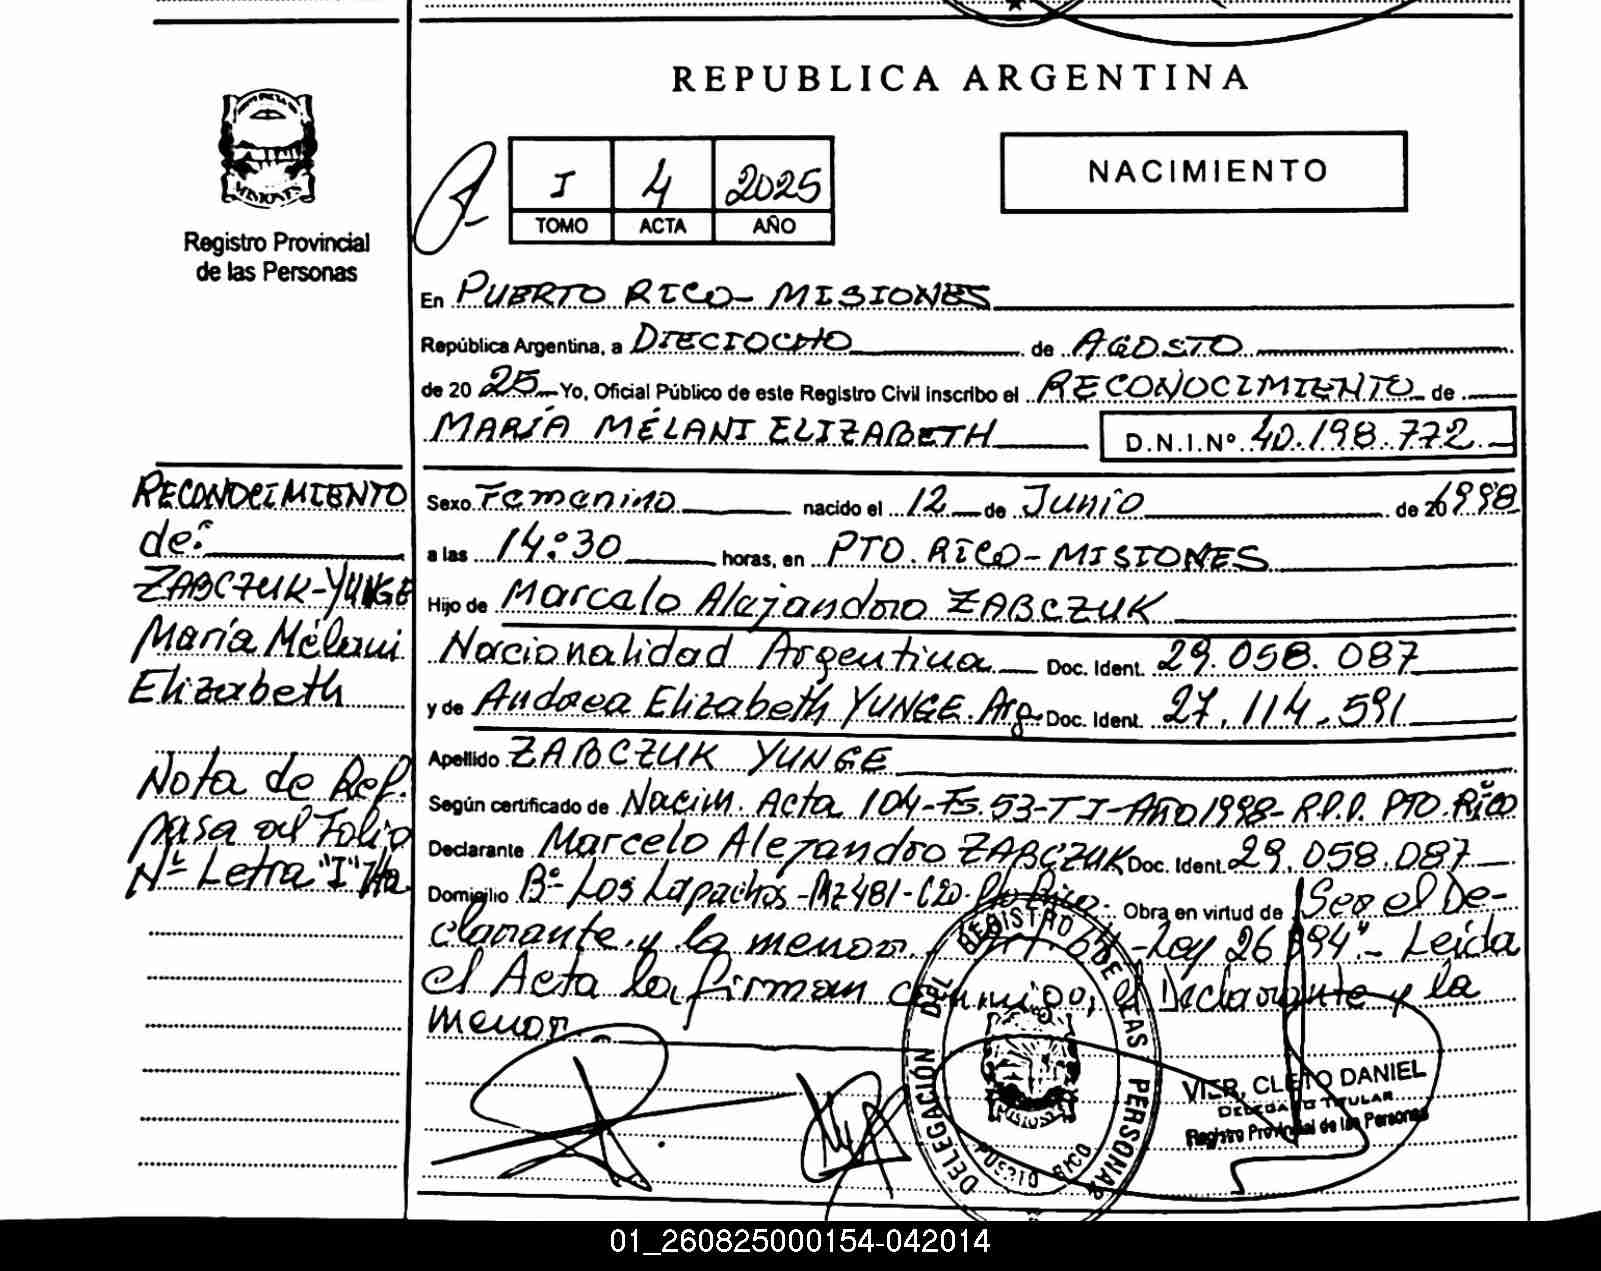 REPUBLICA ARGENTINA
MISIONES
Registro Provincial
de las Personas
I 4 2025
TOMO ACTA AÑO
NACIMIENTO
En PUERTO RICO - MISIONES
República Argentina, a DIECIOCHO de AGOSTO
de 20 25 Yo, Oficial Público de este Registro Civil inscribo el RECONOCIMIENTO de
MARÍA MÉLANI ELIZABETH D.N.I.Nº 40.198.772
RECONOCIMIENTO
de:
ZABCZUK-YUNGE
María Mélani
Elizabeth
Nota de Ref.
pasa al Folio
Nº Letra "I" Vta
Sexo Femenino nacido el 12 de Junio de 20 1998
a las 14:30 horas, en PTO. RICO - MISIONES
Hijo de Marcelo Alejandro ZABCZUK
Nacionalidad Argentina Doc. Ident. 29.058.087
y de Andrea Elizabeth YUNGE. Arg Doc. Ident. 27.114.591
Apellido ZABCZUK YUNGE
Según certificado de Nacim. Acta 104-Fs.53-TI-Año 1998-R.P.P. PTO. Rico
Declarante Marcelo Alejandro ZABCZUK Doc. Ident. 29.058.087
Domicilio Bº Los Lapachos - Mz 481 - C20 - Pto Rico. Obra en virtud de Ser el De-
clarante y la menor. Ley 26 994". Leída
el Acta la firman conmigo, el Declarante y la
menor.
DELEGACIÓN DEL REGISTRO DE LAS PERSONAS
MISIONES
PUERTO RICO
VIER, CLETO DANIEL
DELEGADO TITULAR
Registro Provincial de las Personas
01_260825000154-042014